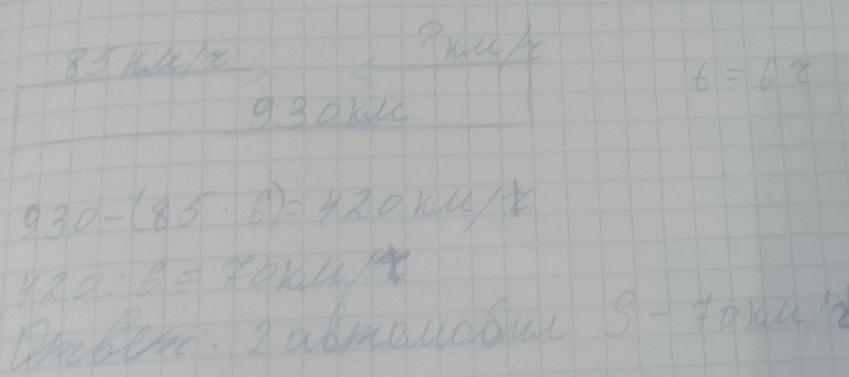 85 км/ч ? км/ч
t = 6 ч
930 км
930-(85·6)=420 км/ч
420:6=70 км/ч
Ответ: 2 автомобил S - 70 км/ч